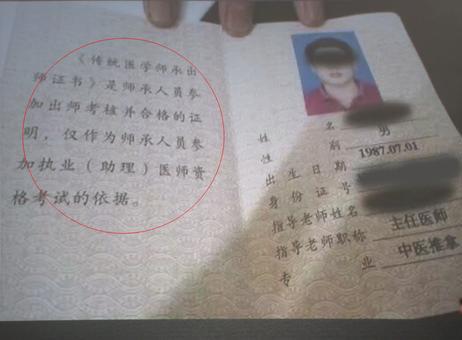 《传统医学师承出
师证书》是师承人员参
加出师考核并合格的证
明，仅作为师承人员参
加执业（助理）医师资
格考试的依据。
姓 名
性 别 男
出生日期 1987.07.01
身份证号
指导老师姓名
指导老师职称 主任医师
专 业 中医推拿